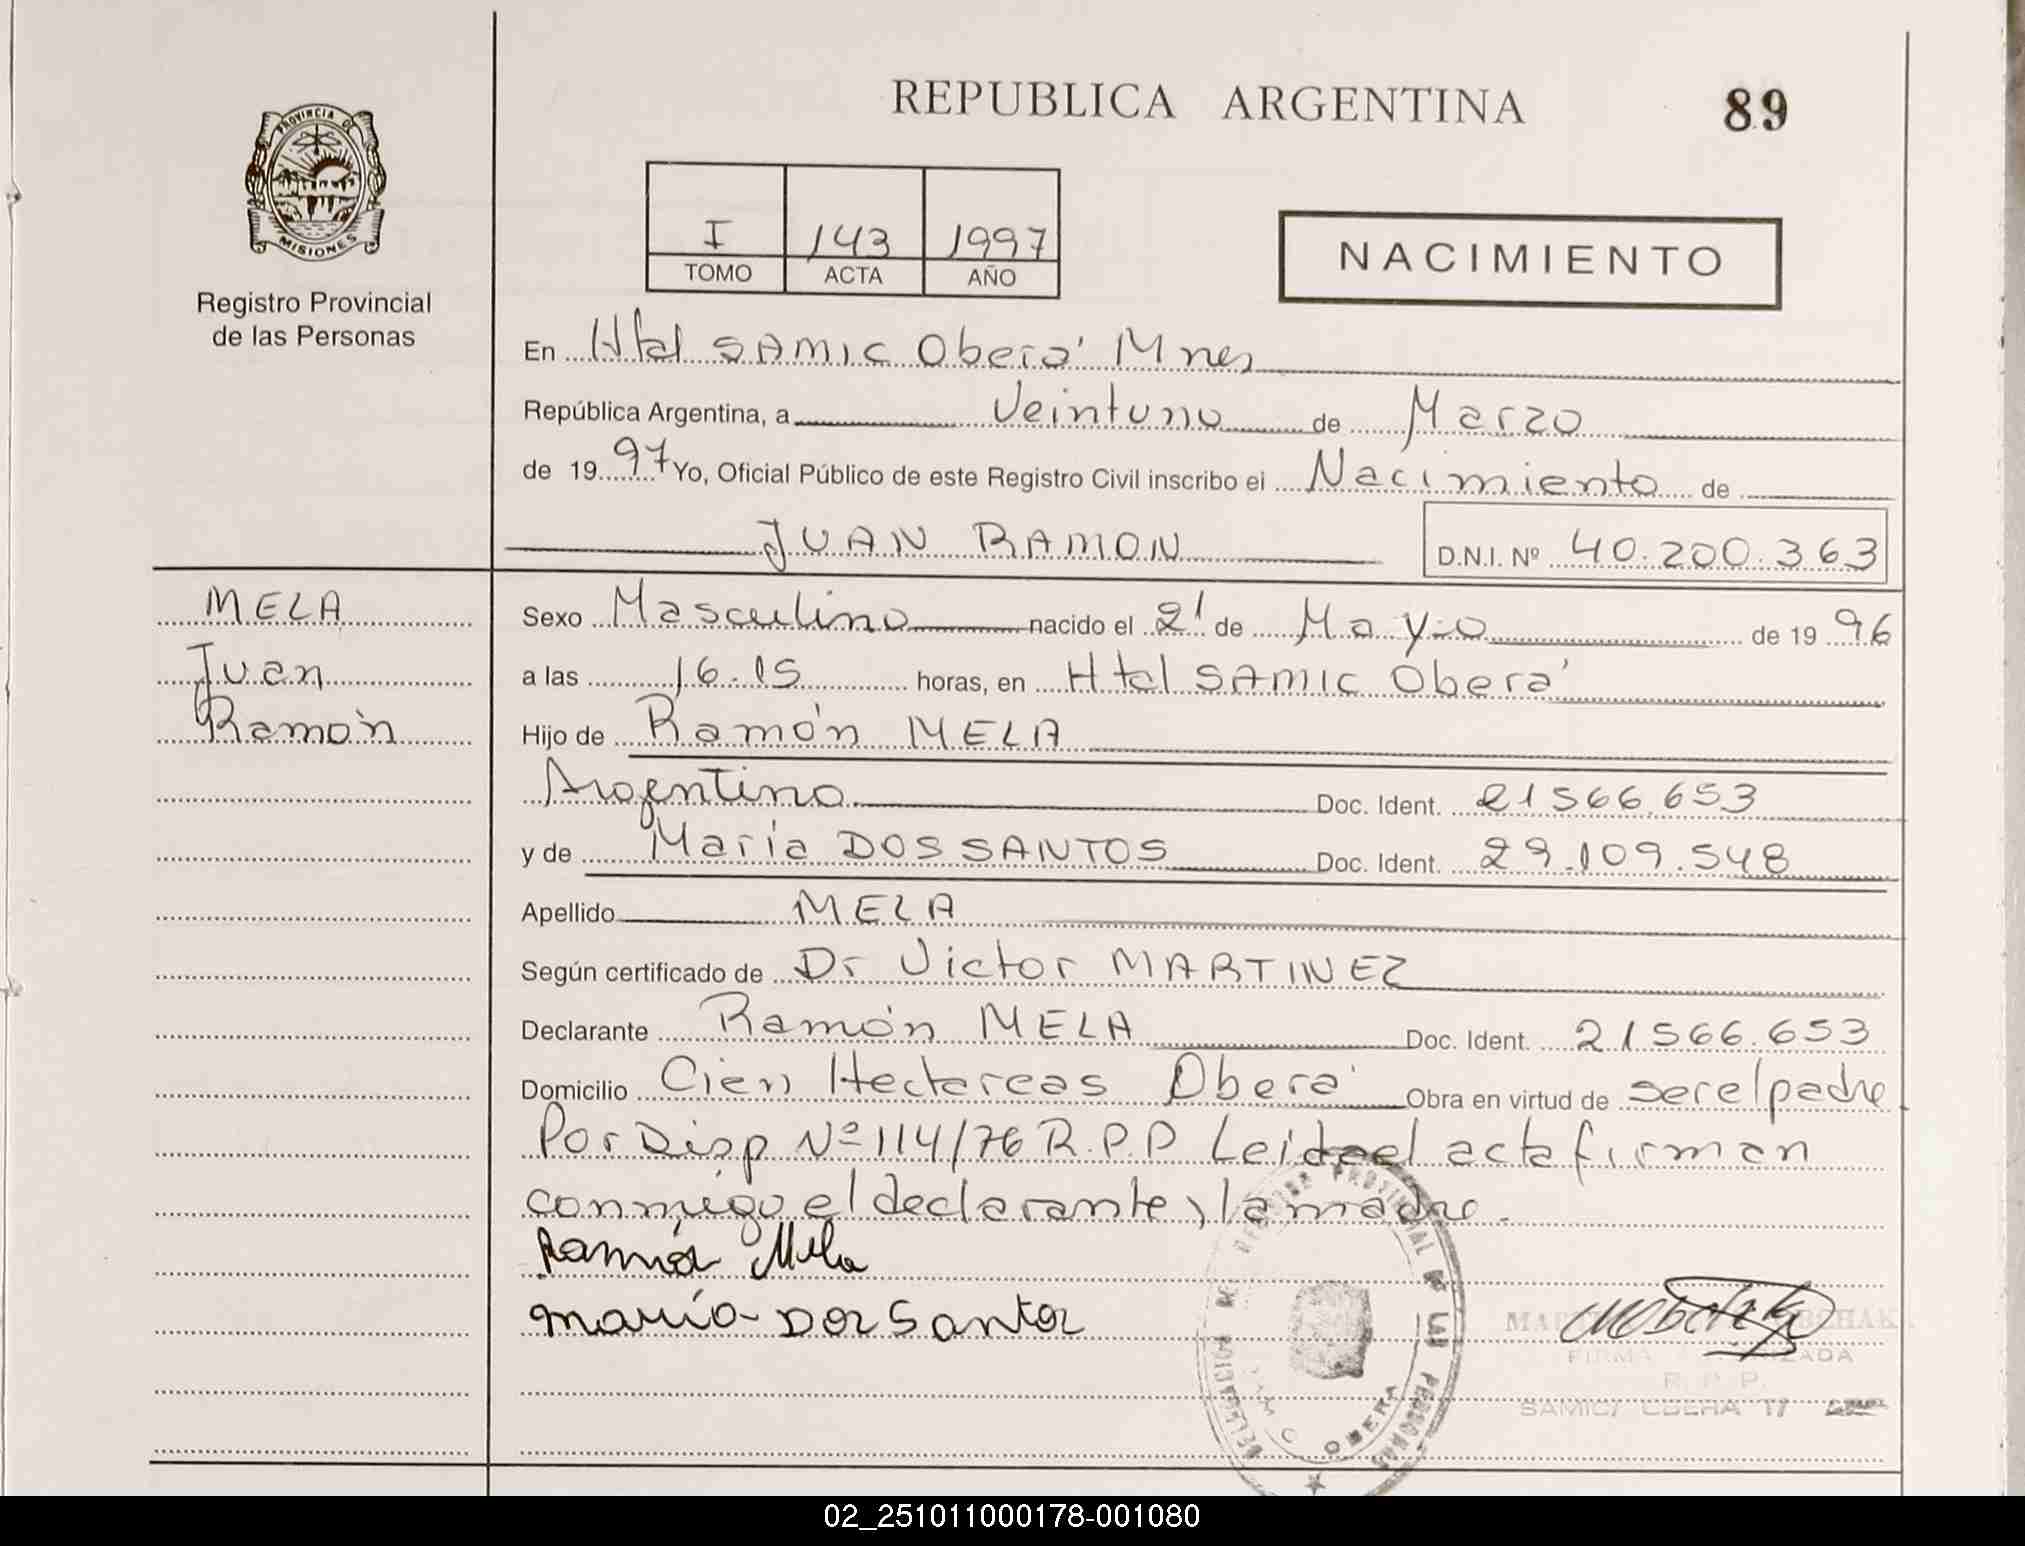 REPUBLICA ARGENTINA
89
PROVINCIA DE
MISIONES
Registro Provincial
de las Personas
I 143 1997
TOMO ACTA AÑO
NACIMIENTO
En Htal SAMIC Oberá Mnes
República Argentina, a Veintuno de Marzo
de 1997 Yo, Oficial Público de este Registro Civil inscribo el Nacimiento de
JUAN RAMON D.N.I. Nº 40.200.363
MELA
Juan
Ramón
Sexo Masculino nacido el 21 de Mayo de 1996
a las 16.15 horas, en Htal SAMIC Oberá
Hijo de Ramón MELA
Argentino Doc. Ident. 21566.653
y de María DOS SANTOS Doc. Ident. 29.109.548
Apellido MELA
Según certificado de Dr Victor MARTINEZ
Declarante Ramón MELA Doc. Ident. 21566.653
Domicilio Cien Hectareas Oberá Obra en virtud de ser el padre
Por Disp Nº 114/76 R.P.P Leida el acta firman
conmigo el declarante y la madre.
Ramón Mela
maria Dos Santos
PROVINCIAL DE LAS PERSONAS
OBERA
R. P. P.
02_251011000178-001080